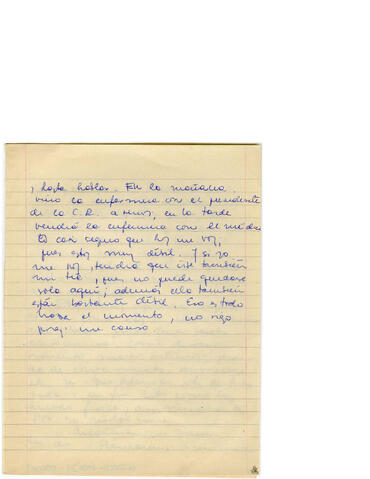 , hasta hablar. En la mañana
vino la enfermera con el presidente
de la C.R. a vernos, en la tarde
vendrá la enfermera con el médico
Es casi seguro que hoy me voy,
pues estoy muy débil. Y si yo
me voy, tendrá que irse también
mi tía, pues no puede quedarse
sola aquí; además ella también
está bastante débil. Eso es todo
hasta el momento, no sigo
me canso